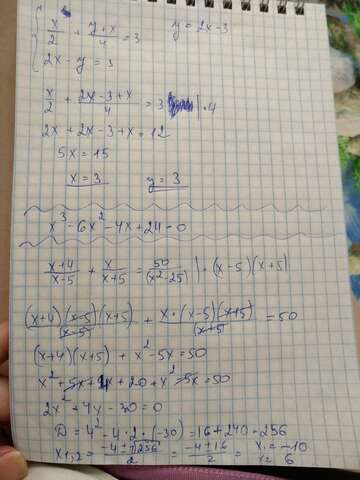 x/2 + (y+x)/4 = 3 y = 2x-3
2x - y = 3
x/2 + (2x-3+x)/4 = 3 |·4
2x + 2x - 3 + x = 12
5x = 15
x = 3 y = 3
x³ - 6x² - 4x + 24 = 0
(x+4)/(x-5) + x/(x+5) = 50/(x²-25) |·(x-5)(x+5)
(x+4)(x-5)(x+5)/(x-5) + x·(x-5)(x+5)/(x+5) = 50
(x+4)(x+5) + x² - 5x = 50
x² + 5x + 4x + 20 + x² - 5x = 50
2x² + 4x - 30 = 0
D = 4² - 4·2·(-30) = 16 + 240 = 256
x1,2 = (-4±√256)/2 = (-4±16)/2 = x1 = -10
x2 = 6